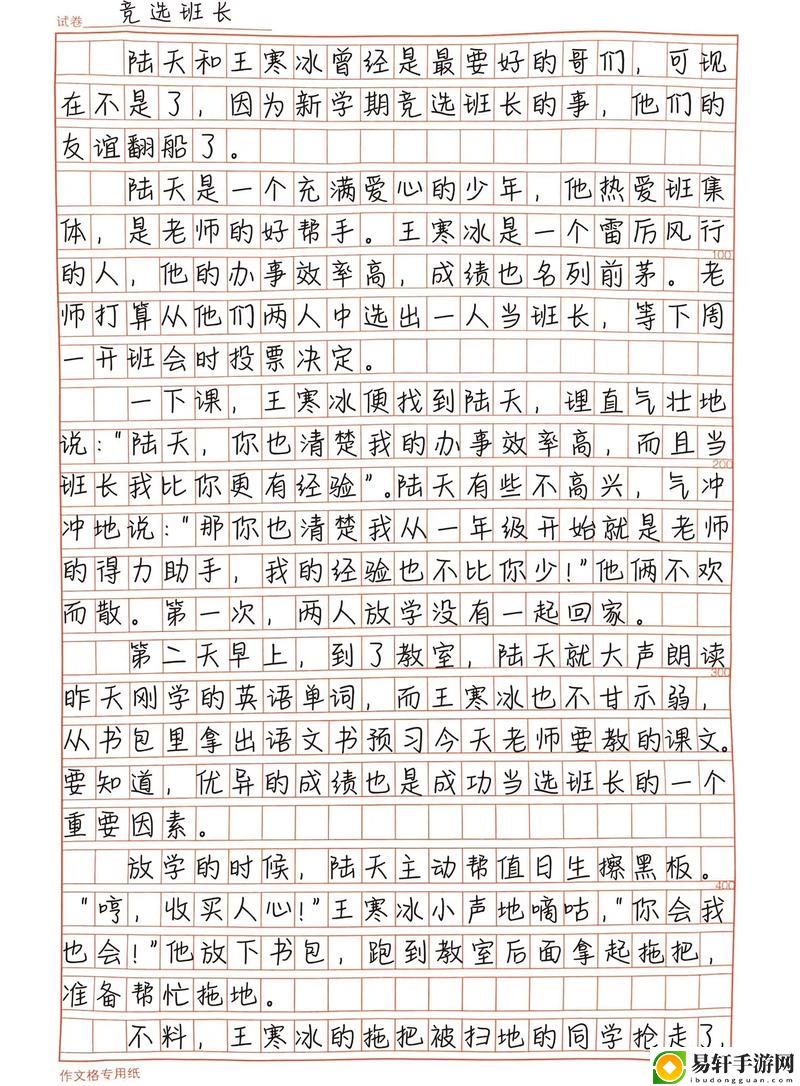 试卷 竞选班长
陆天和王寒冰曾经是最要好的哥们，可现
在不是了，因为新学期竞选班长的事，他们的
友谊翻船了。
陆天是一个充满爱心的少年，他热爱班集
体，是老师的好帮手。王寒冰是一个雷厉风行
100
的人，他的办事效率高，成绩也名列前茅。老
师打算从他们两人中选出一人当班长，等下周
一开班会时投票决定。
一下课，王寒冰便找到陆天，理直气壮地
说："陆天，你也清楚我的办事效率高，而且当
200
班长我比你更有经验"。陆天有些不高兴，气冲
冲地说："那你也清楚我从一年级开始就是老师
的得力助手，我的经验也不比你少!"他俩不欢
而散。第一次，两人放学没有一起回家。
第二天早上，到了教室，陆天就大声朗读
300
昨天刚学的英语单词，而王寒冰也不甘示弱，
从书包里拿出语文书预习今天老师要教的课文。
要知道，优异的成绩也是成功当选班长的一个
重要因素。
放学的时候，陆天主动帮值日生擦黑板。
400
"哼，收买人心!"王寒冰小声地嘀咕，"你会我
也会!"他放下书包，跑到教室后面拿起拖把，
准备帮忙拖地。
不料，王寒冰的拖把被扫地的同学抢走了，
作文格专用纸
易轩手游网
ibudongguan.com